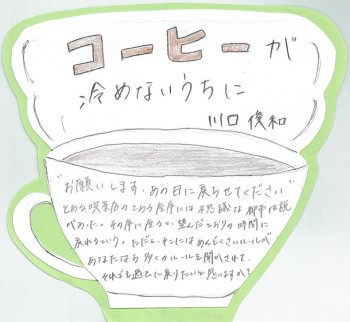 コーヒーが
冷めないうちに
川口 俊和
"お願いします、あの日に戻らせてください"
とある喫茶店のとある座席には不思議な都市伝説
があった。その席に座ると望んだとおりの時間に
戻れるという。ただし、そこにはめんどくさいルールが
あなたなら多くのルールを聞かされて、
それでも過去に戻りたいと思いますか?